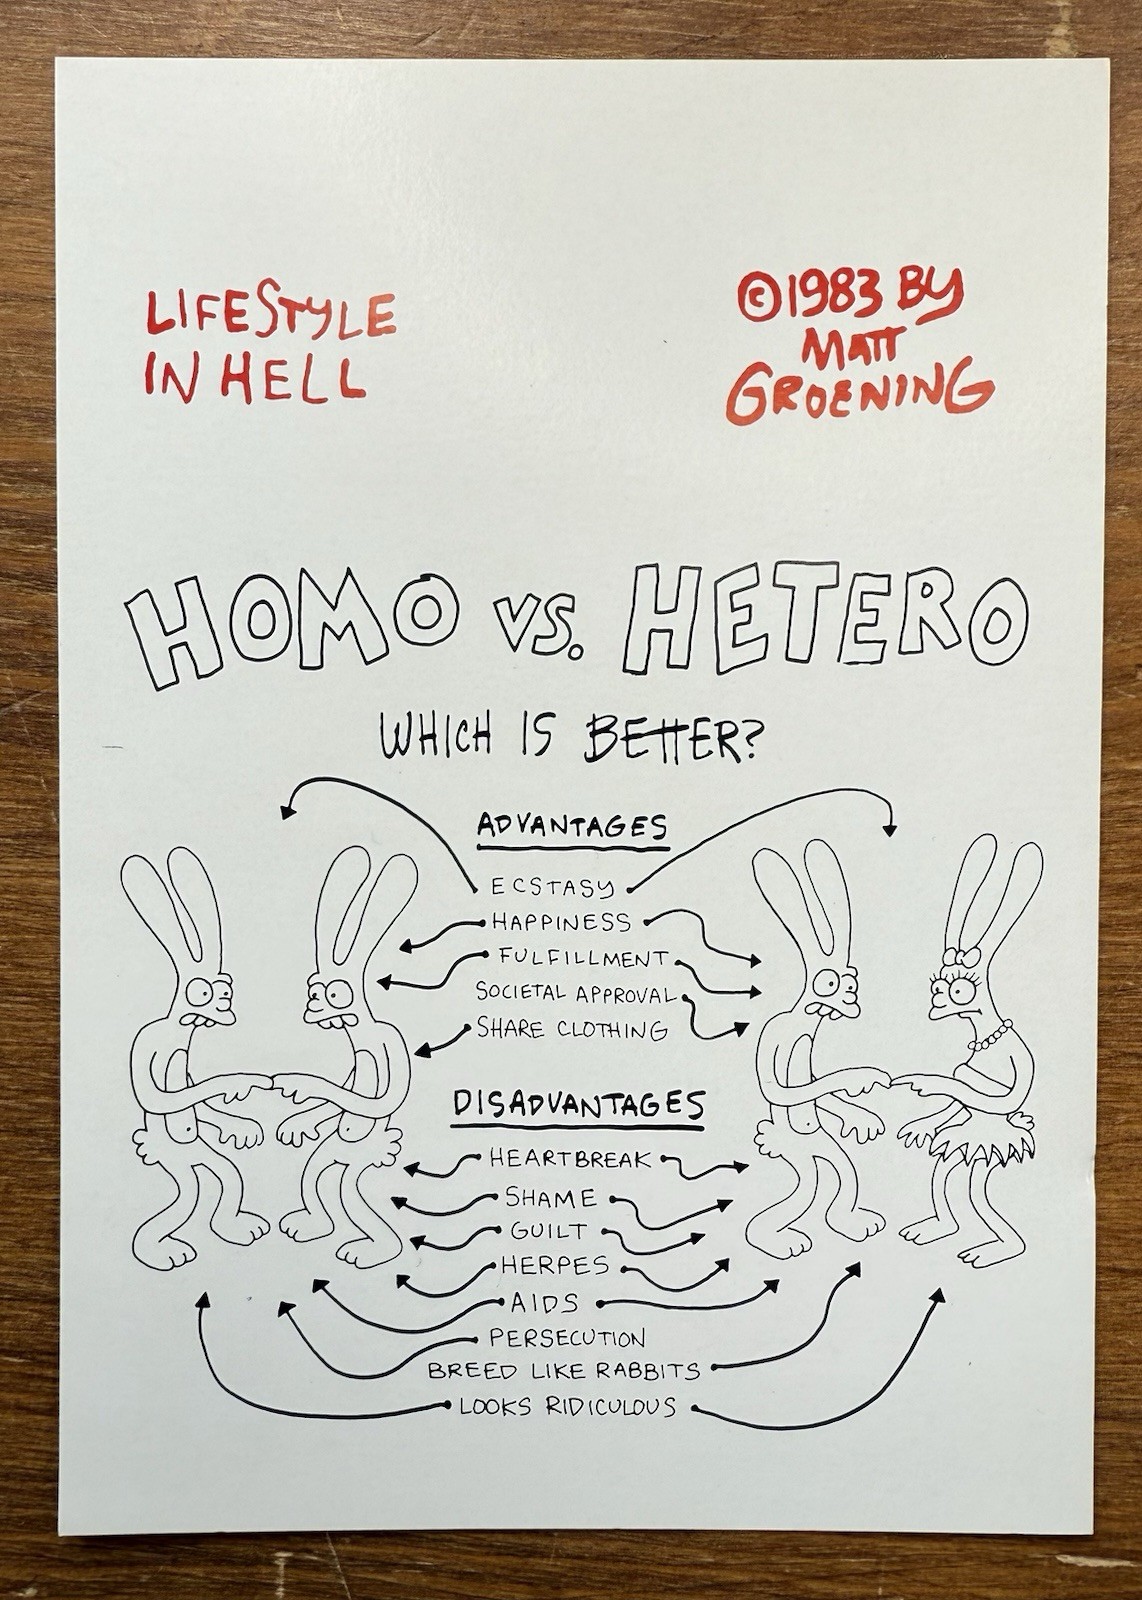 LIFESTYLE
IN HELL
©1983 BY
MATT
GROENING
HOMO VS. HETERO
WHICH IS BETTER?
ADVANTAGES
ECSTASY
HAPPINESS
FULFILLMENT
SOCIETAL APPROVAL
SHARE CLOTHING
DISADVANTAGES
HEARTBREAK
SHAME
GUILT
HERPES
AIDS
PERSECUTION
BREED LIKE RABBITS
LOOKS RIDICULOUS